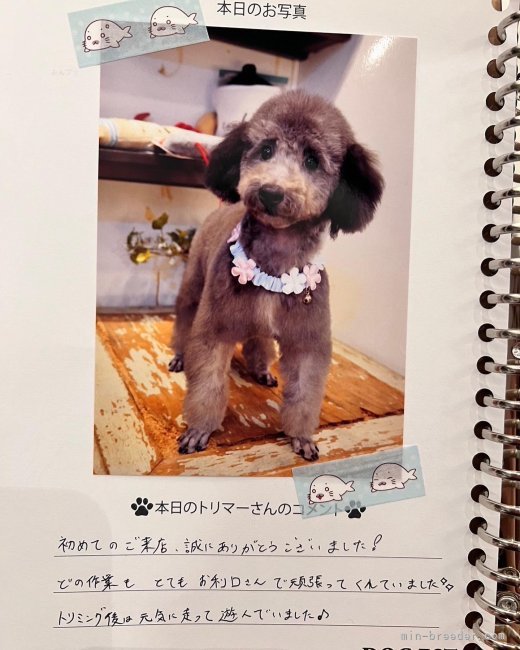 本日のお写真
本日のトリマーさんのコメント
初めてのご来店、誠にありがとうございました!
どの作業も とても お利口さんで頑張ってくれていました♪
トリミング後は元気に走って遊んでいました♪
min-breeder.com